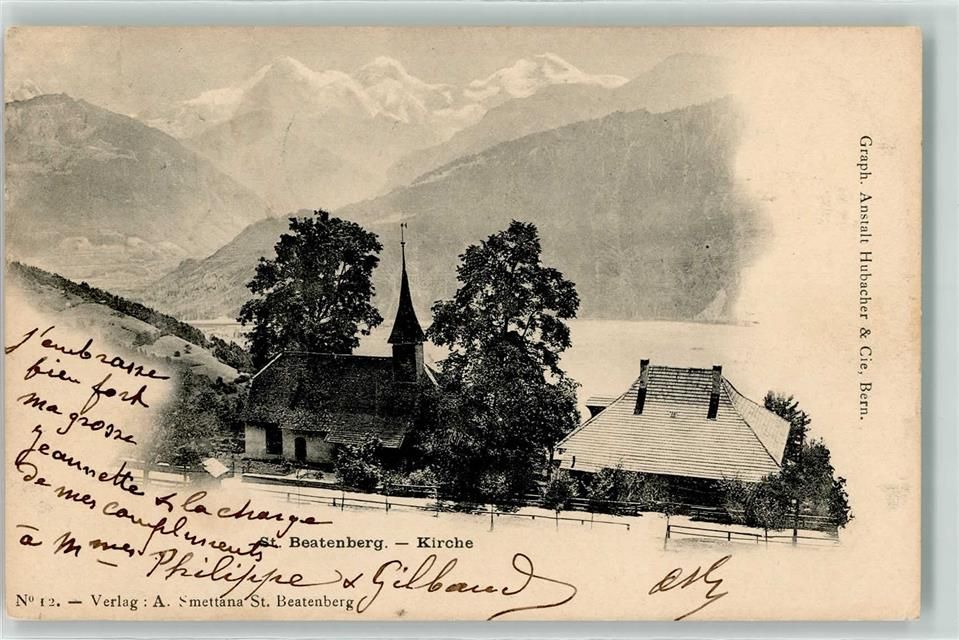 j'embrasse
bien fort
ma grosse
Jeannette & la charge
de mes compliments
à Mmes
Philippe & Gilbaud
St. Beatenberg. — Kirche
Nº 12. — Verlag : A. Smettana St. Beatenberg
Graph. Anstalt Hubacher & Cie, Bern.